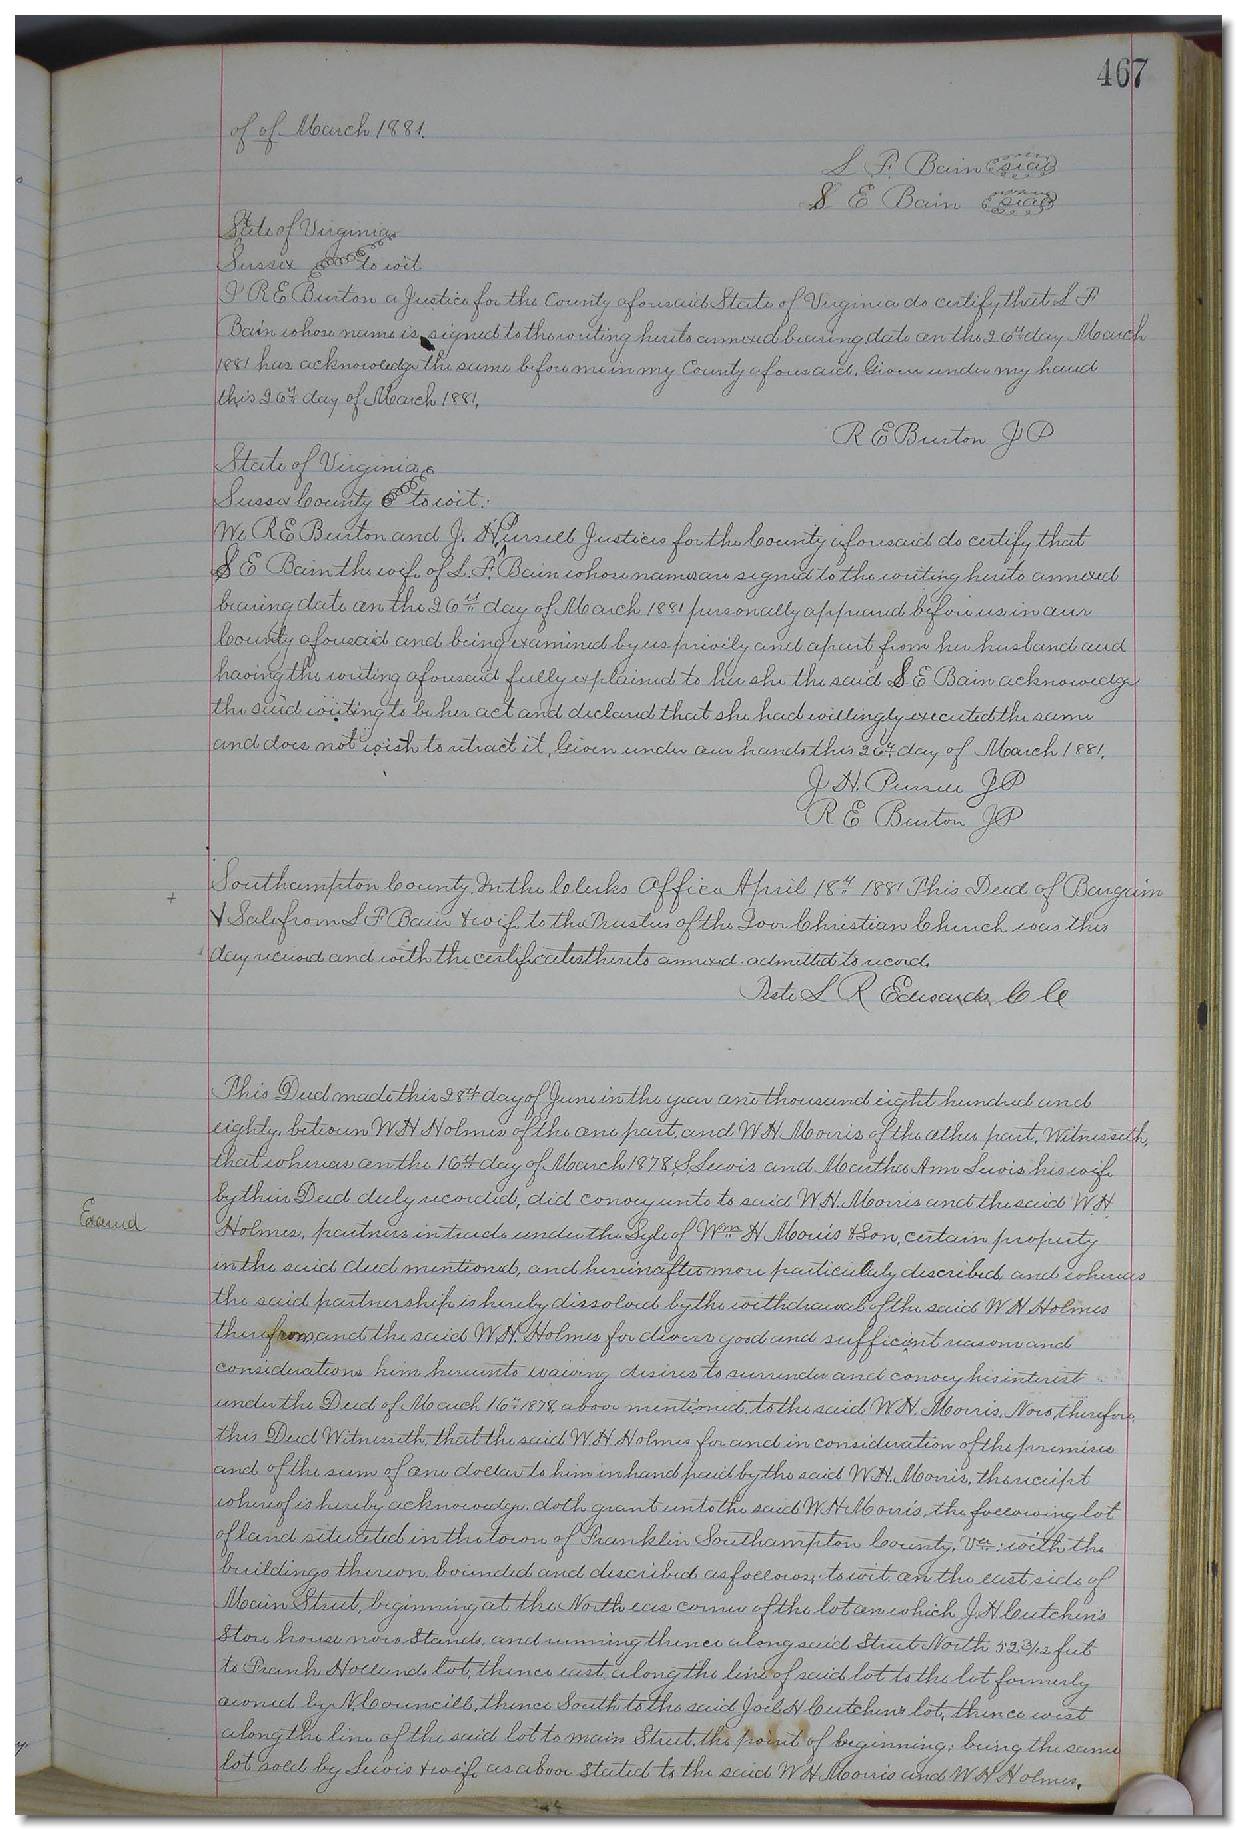 467
of of March 1881.
S F. Bain Seal
S E Bain Seal
State of Virginia
Sussex to wit
I R E Burton a Justice for the County aforesaid State of Virginia do certify that S F
Bain whose name is signed to the writing hereto annexed bearing date on the 26th day March
1881 has acknowledge the same before me in my County aforesaid. Given under my hand
this 26th day of March 1881.
R E Burton J P
State of Virginia
Sussex County to wit:
We R E Burton and J. H Pursell Justices for the County aforesaid do certify that
S E Bain the wife of S. F. Bain whose names are signed to the writing hereto annexed
bearing date on the 26th day of March 1881 personally appeared before us in our
County aforesaid and being examined by us privily and apart from her husband and
having the writing aforesaid fully explained to her she the said S E Bain acknowledge
the said writing to be her act and declared that she had willingly executed the same
and does not wish to retract it, Given under our hands this 26th day of March 1881.
J H. Pursell J P
R E Burton J P
Southampton County. In the Clerks Office April 18th 1881 This Deed of Bargain
& Sale from S F Bain & wife to the Trustees of the Ivor Christian Church was this
day received and with the certificates thereto annexed admitted to record.
Teste S R Edwards, C C
This Deed made this 28th day of June in the year one thousand eight hundred and
eighty, between W H Holmes of the one part, and W H. Morris of the other part, Witnesseth,
that whereas on the 16th day of March 1878 S. Lewis and Martha Ann Lewis his wife
by their Deed duly recorded, did convey unto to said W H. Morris and the said W. H.
Examd
Holmes, partners in trade under the Syle of Wm H Morris & Son, certain property
in the said deed mentioned, and hereinafter more particularly described and whereas
the said partnership is hereby dissolved by the withdrawal of the said W H Holmes
therefrom and the said W. H. Holmes for divers good and sufficient reasons and
considerations him hereunto waiving desires to surrender and convey his interest
under the Deed of March 16th 1878, above mentioned, to the said W H. Morris, Now, therefore,
this Deed Witnesseth, that the said W H Holmes for and in consideration of the premises
and of the sum of one dollar to him in hand paid by the said W H. Morris, the receipt
whereof is hereby acknowledge, doth grant unto the said W H Morris, the following lot
of land situated in the town of Franklin Southampton County, Va: with the
buildings thereon, bounded and described as follows; to wit, on the east side of
Main Street, beginning at the North eas corner of the lot on which J. H Cutchin's
Store house now Stands, and running thence along said Street North 52 3/12 feet
to Frank Holland's lot, thence east, along the line of said lot to the lot formerly
owned by A, Councill, thence South to the said Joel H Cutchin's lot, thence west
along the line of the said lot to main Street, the point of beginning; being the same
lot sold by Lewis & wife as above Stated to the said W H Morris and W H Holmes.